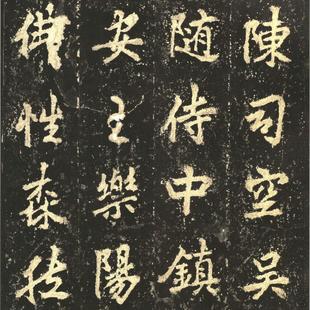 陳司空吴
随侍中鎮
安王樂陽
佛性森然